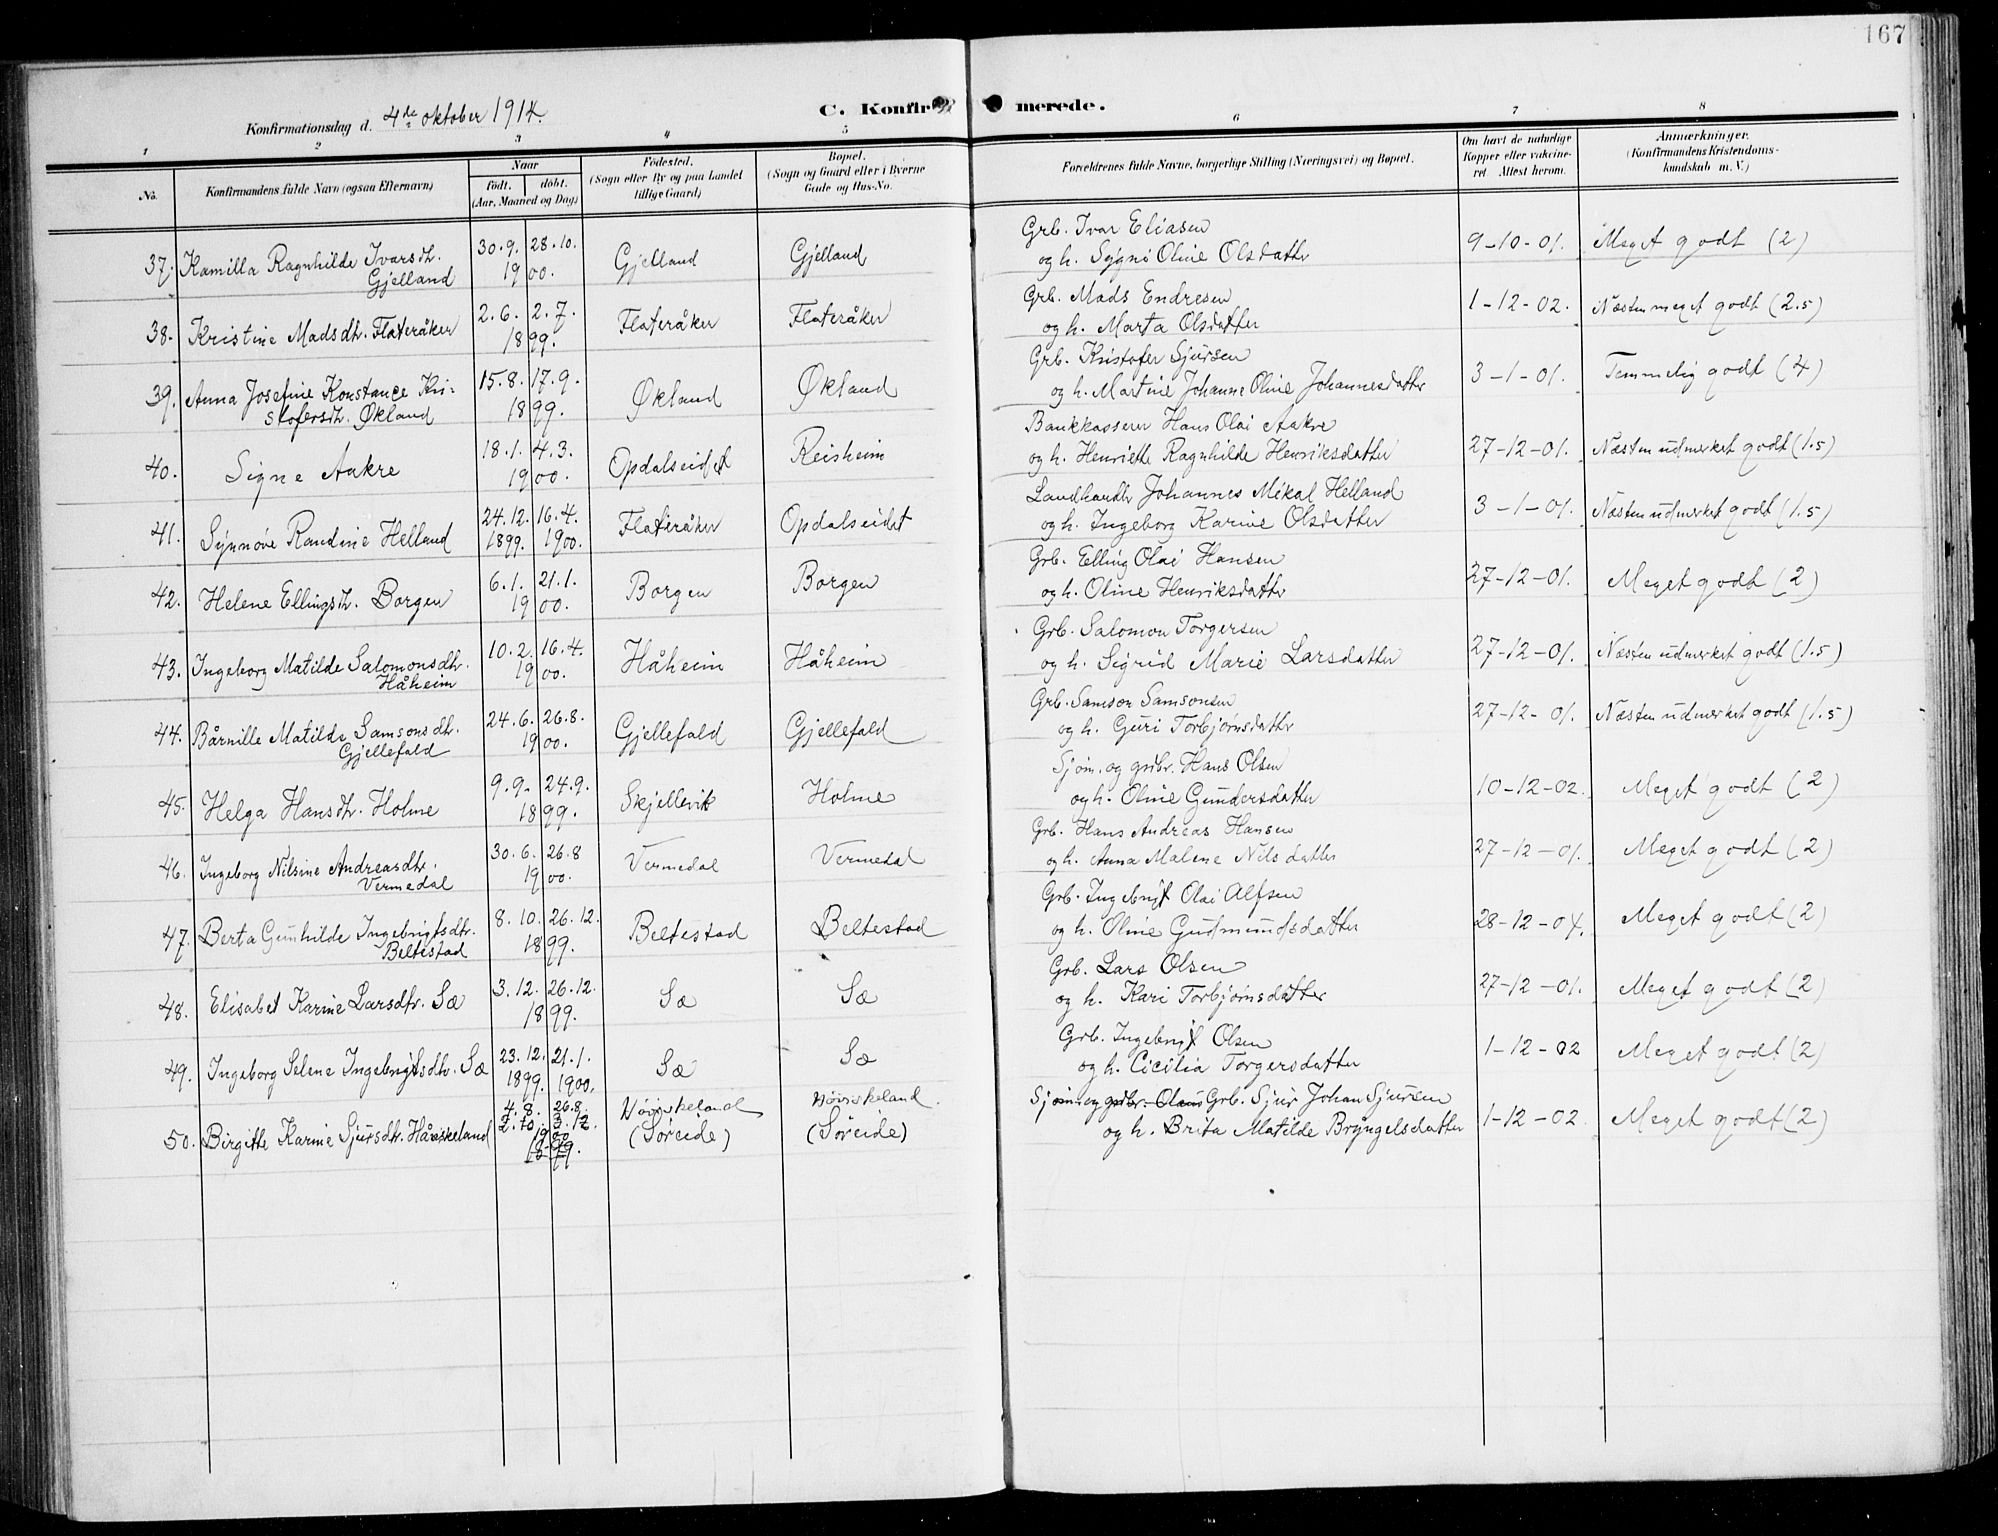 167
Konfirmationsdag d. 4de oktober 1914.
C. Konfir merede.
1 2 3 4 5 6 7 8
No. Konfirmandens fulde Navn (ogsaa Efternavn) Naar født. døbt. (Aar, Maaned og Dag) Fødested. (Sogn eller By og paa Landet tillige Gaard) Bopæl. (Sogn og Gaard eller i Byerne Gade og Hus-No. Forældrenes fulde Navne, borgerlige Stilling (Næringsvei) og Bopæl. Om havt de naturlige Kopper eller vakcineret Attest herom. Anmærkninger. (Konfirmandens Kristendomskundskab m. V.)
37. Kamilla Ragnhilde Ivarsdtr. Gjelland 30.9. 28.10. 1900. Gjelland Gjelland Grb. Ivar Eliasen
og h. Sygni Oline Olsdatter 9-10-01. Meget godt (2)
38. Kristine Madsdtr. Flateråker 2.6. 2.7. 1899. Flateråker Flateråker Grb. Mads Endresen
og h. Marta Olsdatter 1-12-02. Næsten meget godt (2.5)
39. Anna Josefine Konstance Kristofersdtr. Økland 15.8. 17.9. 1899. Økland Økland Grb. Kristofer Sjursen
og h. Martine Johanne Oline Johannesdatter 3-1-01. Temmelig godt (4)
40. Signe Aakre 18.1. 4.3. 1900. Opdalseidet Reisheim Bankkasserer Hans Olai Aakre
og h. Henriette Ragnhilde Henriksdatter 27-12-01. Næsten udmerket godt (1.5)
41. Synnøve Randine Helland 24.12. 1899. 16.4. 1900. Flateråker Opdalseidet Landhandlr Johannes Mikal Helland
og h. Ingeborg Karine Olsdatter 3-1-01. Næsten udmerket godt (1.5)
42. Helene Ellingsdtr. Borgen 6.1. 21.1. 1900. Borgen Borgen Grb. Elling Olai Hansen
og h. Oline Henriksdatter 27-12-01. Meget godt (2)
43. Ingeborg Matilde Salomonsdtr. Håheim 10.2. 16.4. 1900. Håheim Håheim Grb. Salomon Torgersen
og h. Sigrid Marie Larsdatter 27-12-01. Næsten udmerket godt (1.5)
44. Bårnille Matilde Samsonsdtr. Gjellefald 24.6. 26.8. 1900. Gjellefald Gjellefald Grb. Samson Samsonsen
og h. Guri Torbjørnsdatter 27-12-01. Næsten udmerket godt (1.5)
45. Helga Hansdtr. Holme 9.9. 24.9. 1899. Skjellevik Holme Sjøm. og grdbr. Hans Olsen
og h. Oline Gundersdatter 10-12-02. Meget godt (2)
46. Ingeborg Nilsine Andreasdtr. Vermedal 30.6. 26.8 1900. Vermedal Vermedal Grb. Hans Andreas Hansen
og h. Anna Malene Nilsdatter 27-12-01. Meget godt (2)
47. Berta Gunhilde Ingebrigtsdtr. Beltestad 8.10. 26.12. 1899. Beltestad Beltestad Grb. Ingebrigt Olai Alfsen
og h. Oline Gudmundsdatter 28-12-04. Meget godt (2)
48. Elisabet Karine Larsdtr. Sæ 3.12. 26.12. 1899. Sæ Sæ Grb. Lars Olsen
og h. Kari Torbjørnsdatter 27-12-01. Meget godt (2)
49. Ingeborg Selene Ingebrigtsdtr. Sæ 23.12. 1899. 21.1. 1900. Sæ Sæ Grb. Ingebrigt Olsen
og h. Cicilia Torgersdatter 1-12-02 Meget godt (2)
50. Birgitte Karine Sjursdtr. Håviskeland 4.8. 26.8. 2.10. 3.12. 1900 1899. Høviskeland (Søreide) Høviskeland. (Søreide) Sjøm. og grdbr. Olaus Grb. Sjur Johan Sjursen
og h. Brita Matilde Bryngelsdatter 1-12-02. Meget godt (2)